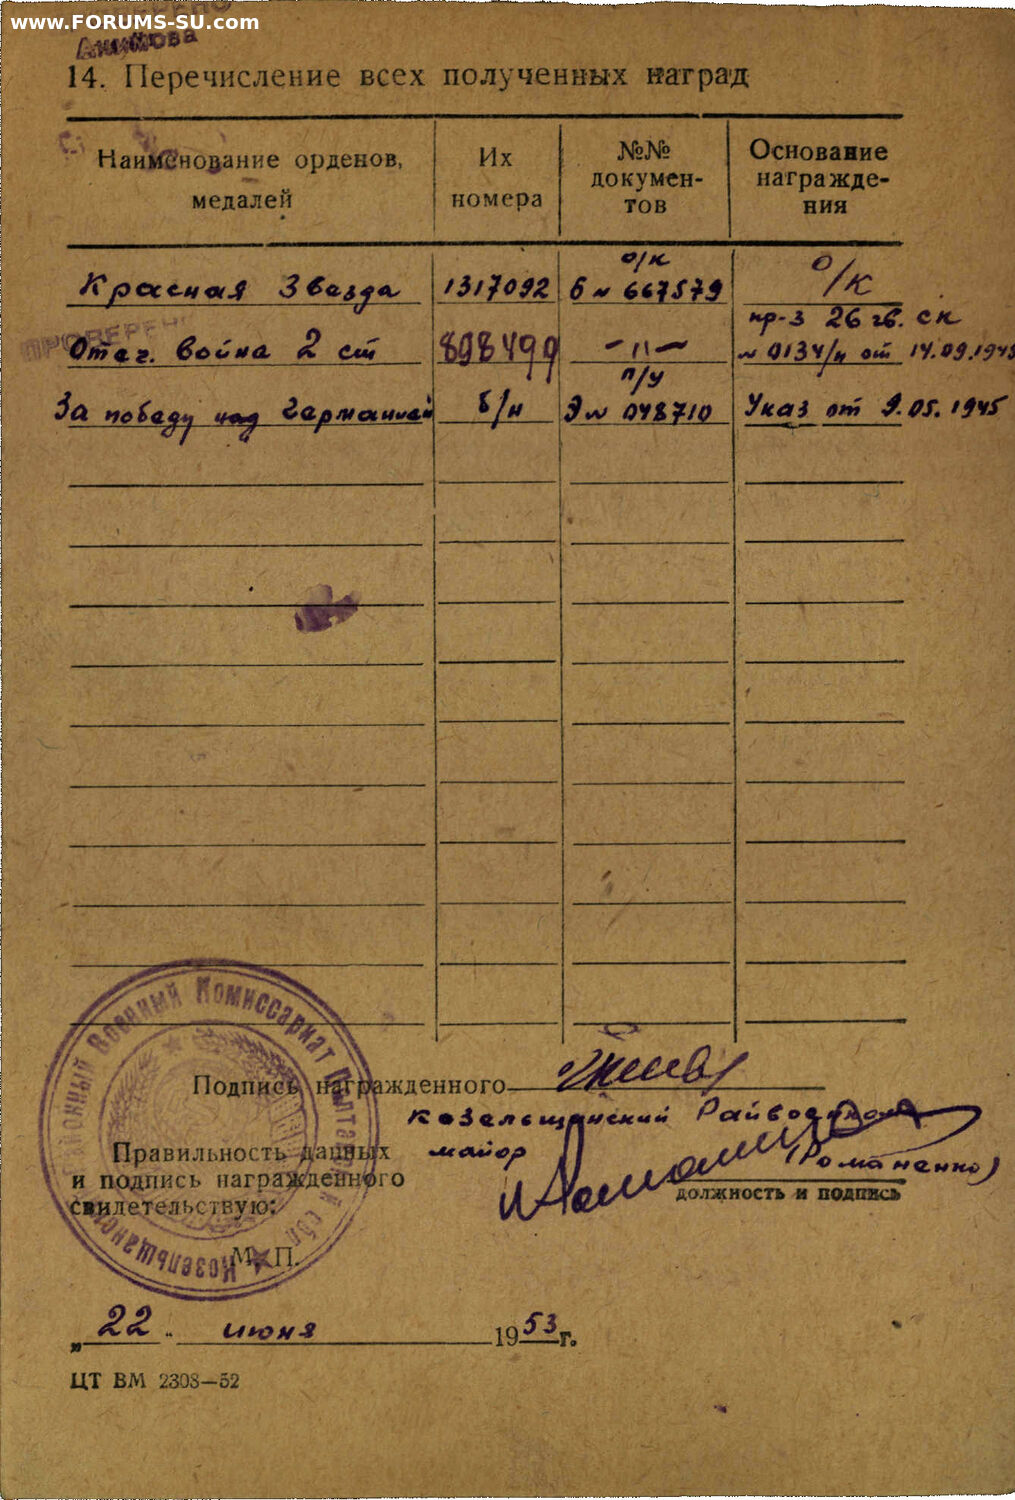 www.FORUMS-SU.com
14. Перечисление всех полученных наград
Наименование орденов, медалей
Их номера
№№ докумен-
тов
Основание
награжде-
ния
Красная Звезда 1317092 о/к Б № 667579 о/к
Отеч. война 2 ст 898499 —〃— пр-з 26 гв. ск
№ 0134/н от 14.09.1945
За победу над Германией б/н п/у Э № 048710 Указ от 9.05.1945
Подпись награжденного
Козельщинский Райвоенком
майор
(Романенко)
Правильность данных
и подпись награжденного
свидетельствую:
должность и подпись
М. П.
Районный Военный Комиссариат Полтавской обл.
„ 22 " июня 1953 г.
ЦТ ВМ 2308—52